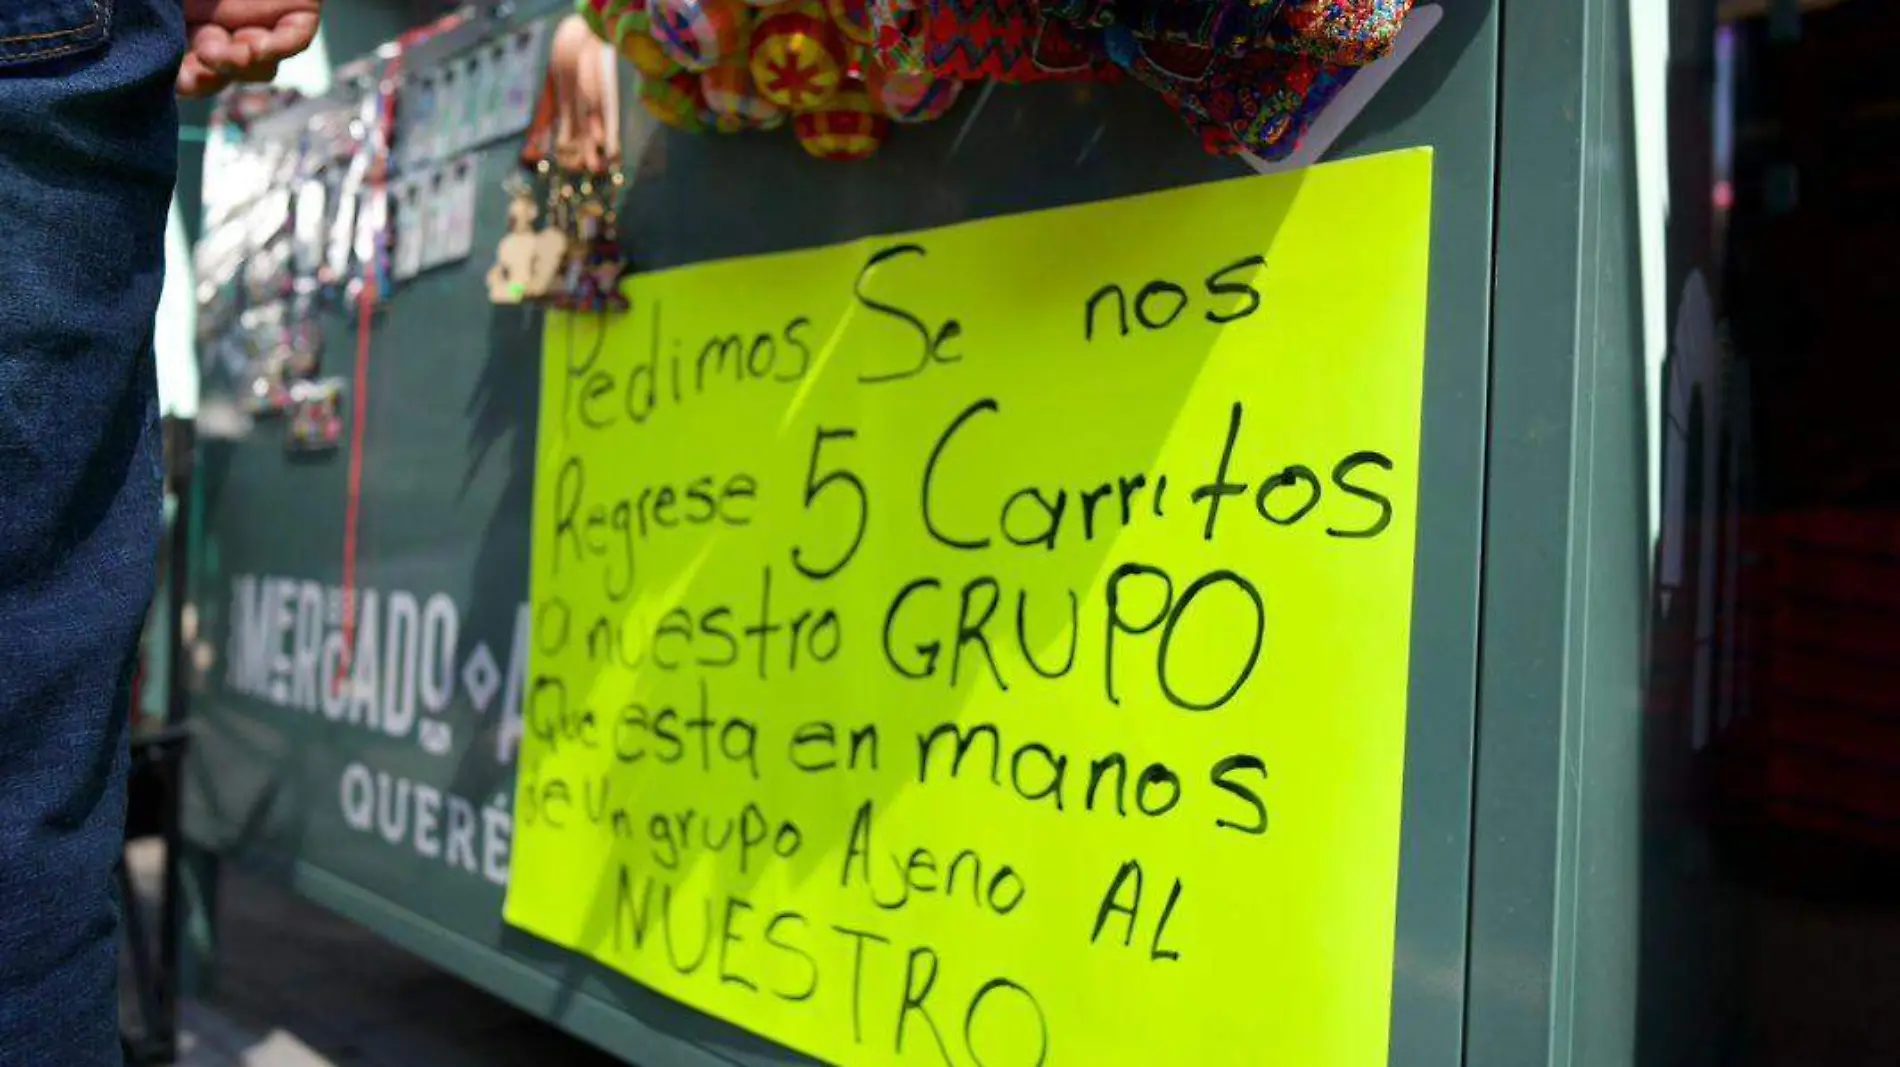 Pedimos Se nos
Regrese 5 Carritos
o nuestro GRUPO
Que esta en manos
de un grupo Ajeno AL
NUESTRO
MERCADO
QUERÉ